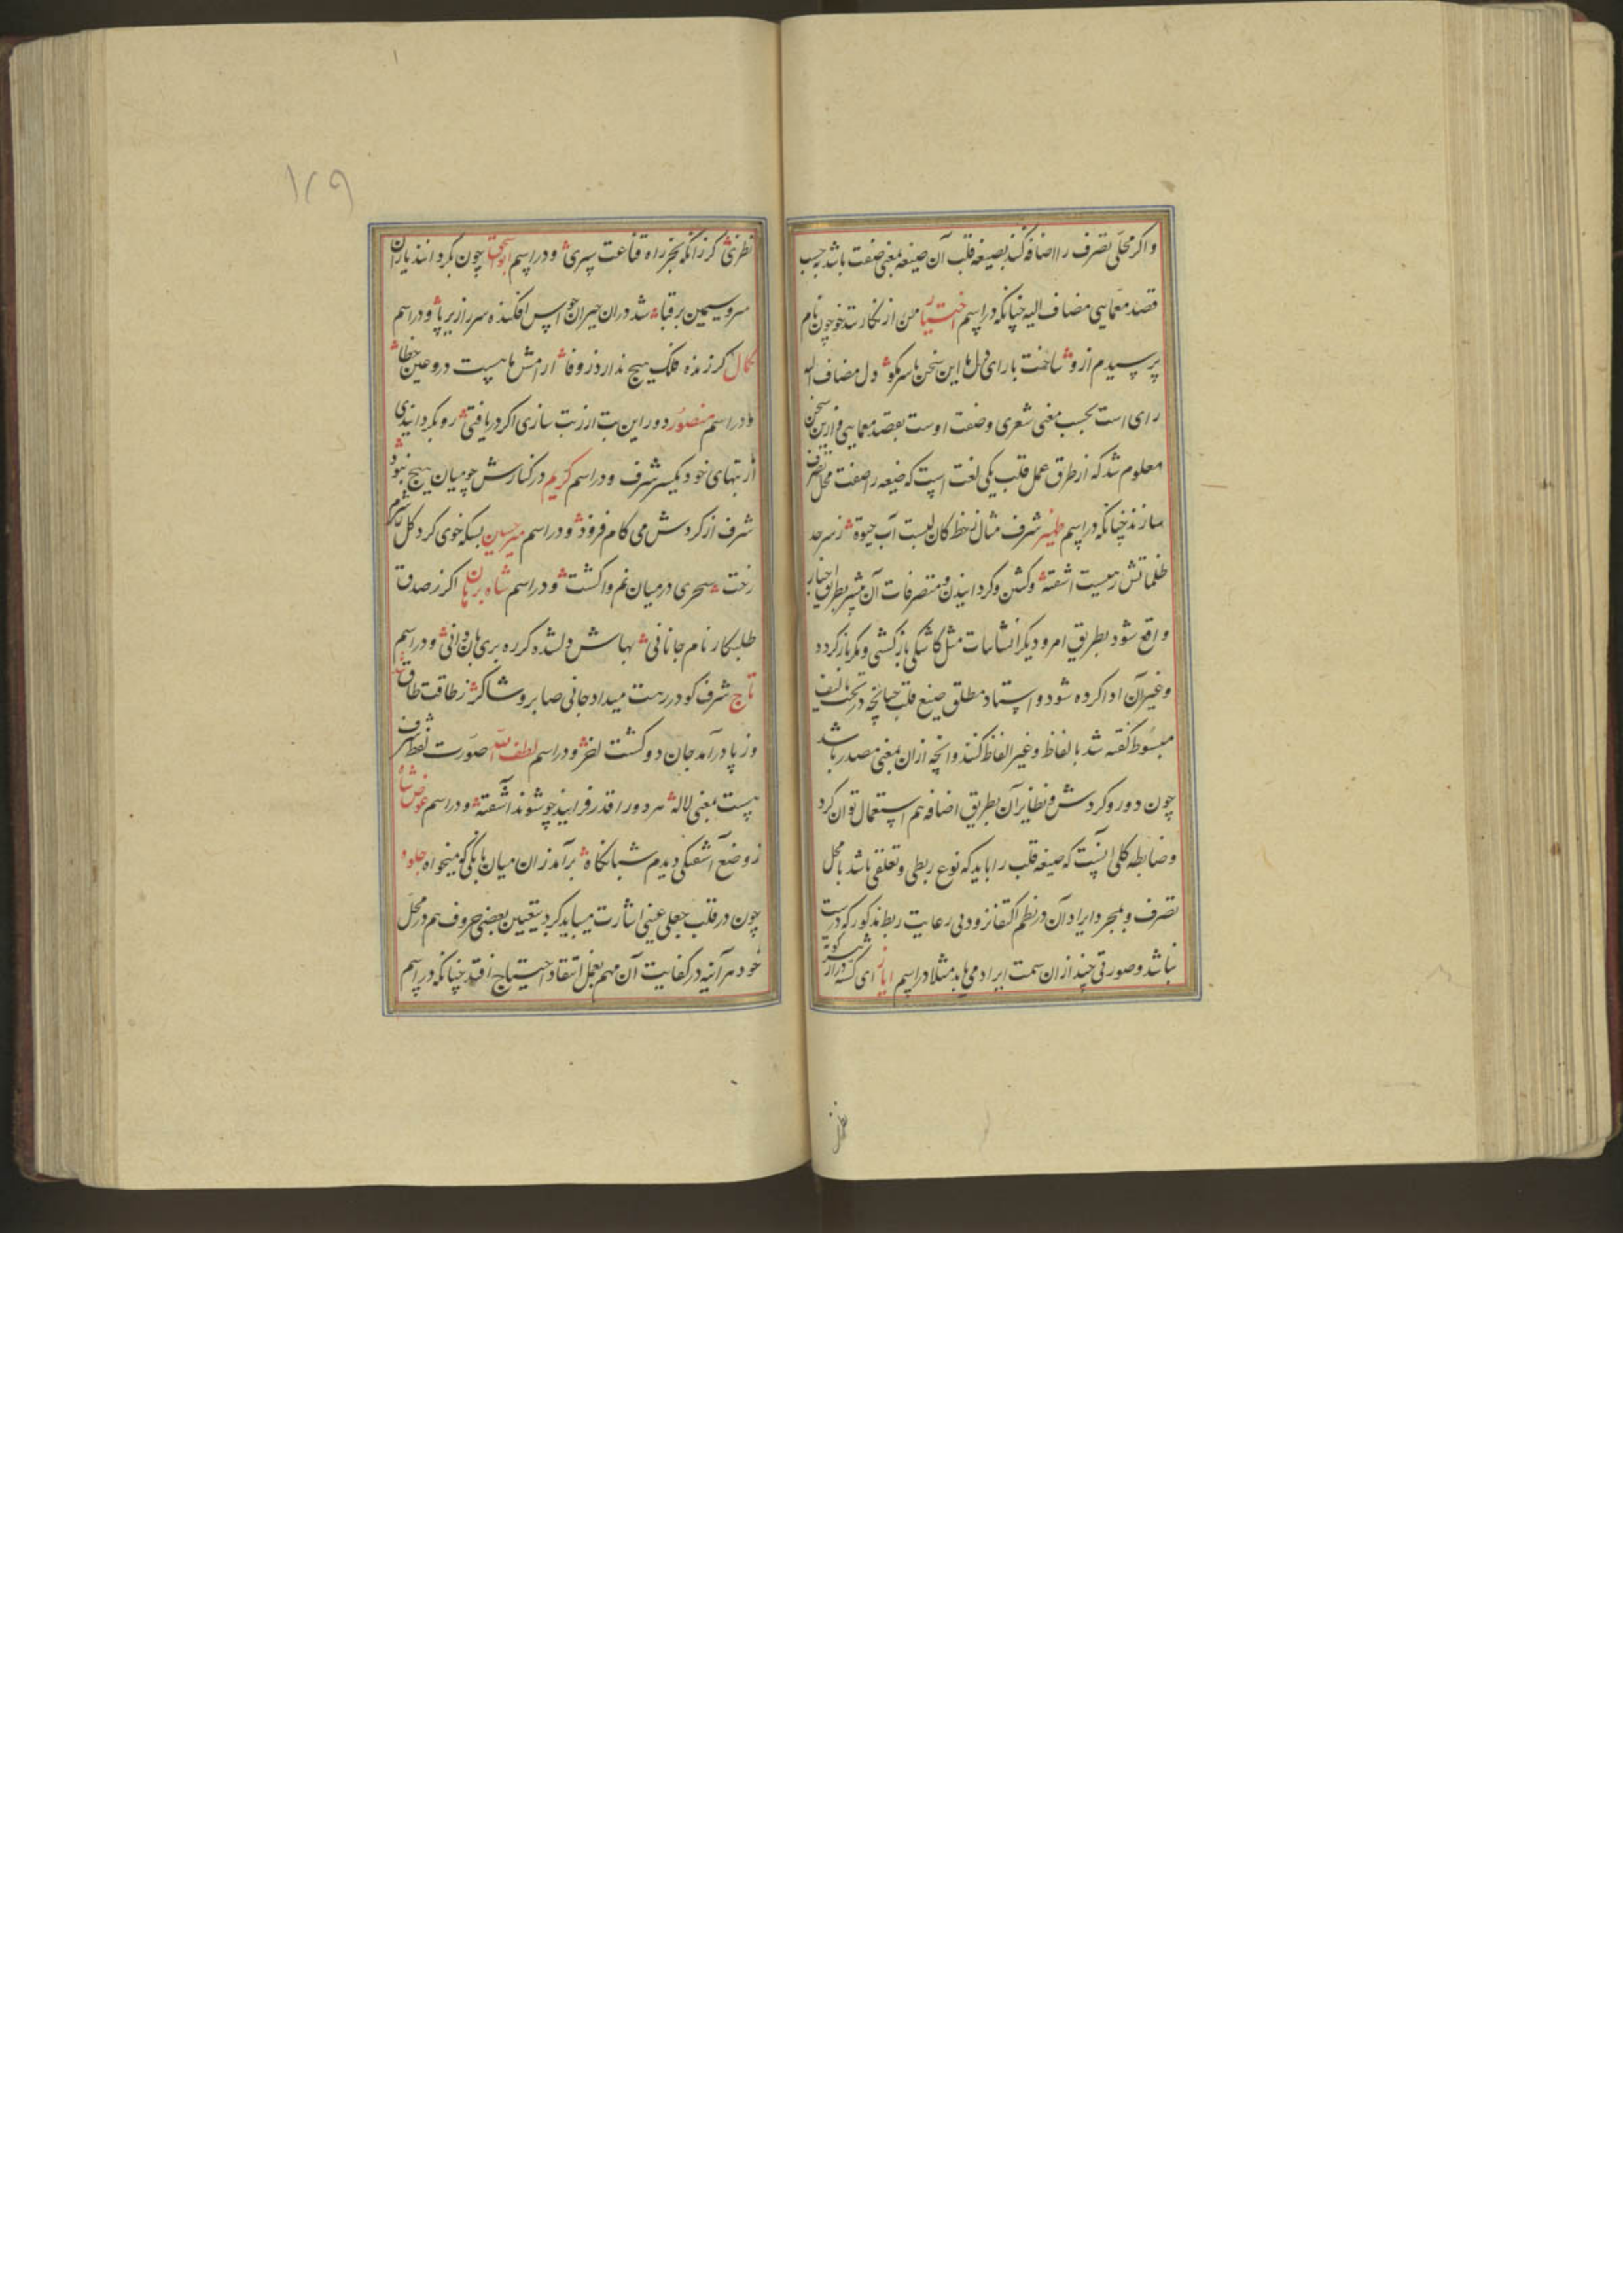 واکر محل تصرف را اضافه کنند بصیغه قلب آن صیغه بمعنی صفت باشد بحسب
قصد معمایی مضاف الیه چنانکه در اسم اختیار من از نکار تندخو چون نام
پرسیدم ازو ث ساخت با رای دل ما این سخن با سر مکو ث دل مضاف الیه
رای است بحسب معنی شعری و صفت اوست بقصد معمایی و ازین سخن
معلوم شد که از طرق عمل قلب یکی لغت است که صیغه را صفت محل تصرف
سازند چنانکه در اسم ظهیر شرف مثال خط کان لبست آب حیوة ث ز سرحد
ظلماتش رهیست اشفته ث و کشتن و کردانیدن و متصرفات آن بیشتر بطریق اخبار
واقع شود بطریق امر و دیکر انشاات مثل کاشکی باز کشتی و مکر باز کردد
وغیر آن ادا کرده شود و استاد مطلق صیغ قلب چنانچه در تحت تالیف
مبسوط کفته شد بالفاظ وغیر الفاظ کنند و انچه ازان بمعنی مصدر باشد
چون دور و کردش و نظایر آن بطریق اضافه هم استعمال توان کرد
وضابطه کلی اینست که صیغه قلب را باید که نوع ربطی و تعلقی باشد با محل
تصرف و بمجرد ایراد آن در نظم اکتفا نرود بی رعایت ربط مذکور که درست
نباشد و صورتی چند ازان سمت ایراد می یابد مثلا در اسم ایاز ای کشته دراز
نظرش
۱۲۹
نظرش ث کرزانکه بخر راه قناعت سپری ث و در اسم ابواسحق چون بکردانند یاران
سرو سیمین بر قبا ث شد دران حیران حواس افکنده سر از زیر پا ث و در اسم
کمال کرزنده فلک هیچ ندارد ز وفا ث ارامش ما هست درو عین خطا ث
و در اسم منصور دور این بت ار زبت سازی اکر دریافتی ث رو بکردانیدی
از بتهای خود یکسر شرف و در اسم کریم در کنارش چو میان هیچ نبود ث
شرف از کردش می کام فزود ث و در اسم میرحسین بسکه خوی کرد کل ز شرم
رخت ث سحری در میان نم واکشت ث و در اسم شاه برهان اکر ز صدق
طلبکار نام جانانی ث بهاش دلشده کر ره بری بان دانی ث و در اسم
تاج شرف کو در رهت میداد جانی صابر و شاکر ث ز طاقت طاق شد
وز پا درآمد جان دو کشت اخر ث و در اسم لطف الله صورت لفظ شرف
هست بمعنی لاله ث هر دو را قدر فزایند چو شوند آشفته ث و در اسم عوض شاه
ز وضع آشفتکی دیدم شبانکاه ث برآمد زان میان بانکی کو میخواه جلوه
چون در قلب جعلی عینی اشارت میباید کرد بتعیین بعضی حروف هم در محل
خود هر آینه در کفایت آن مهم بعمل انتقاد احتیاج افتد چنانکه در اسم